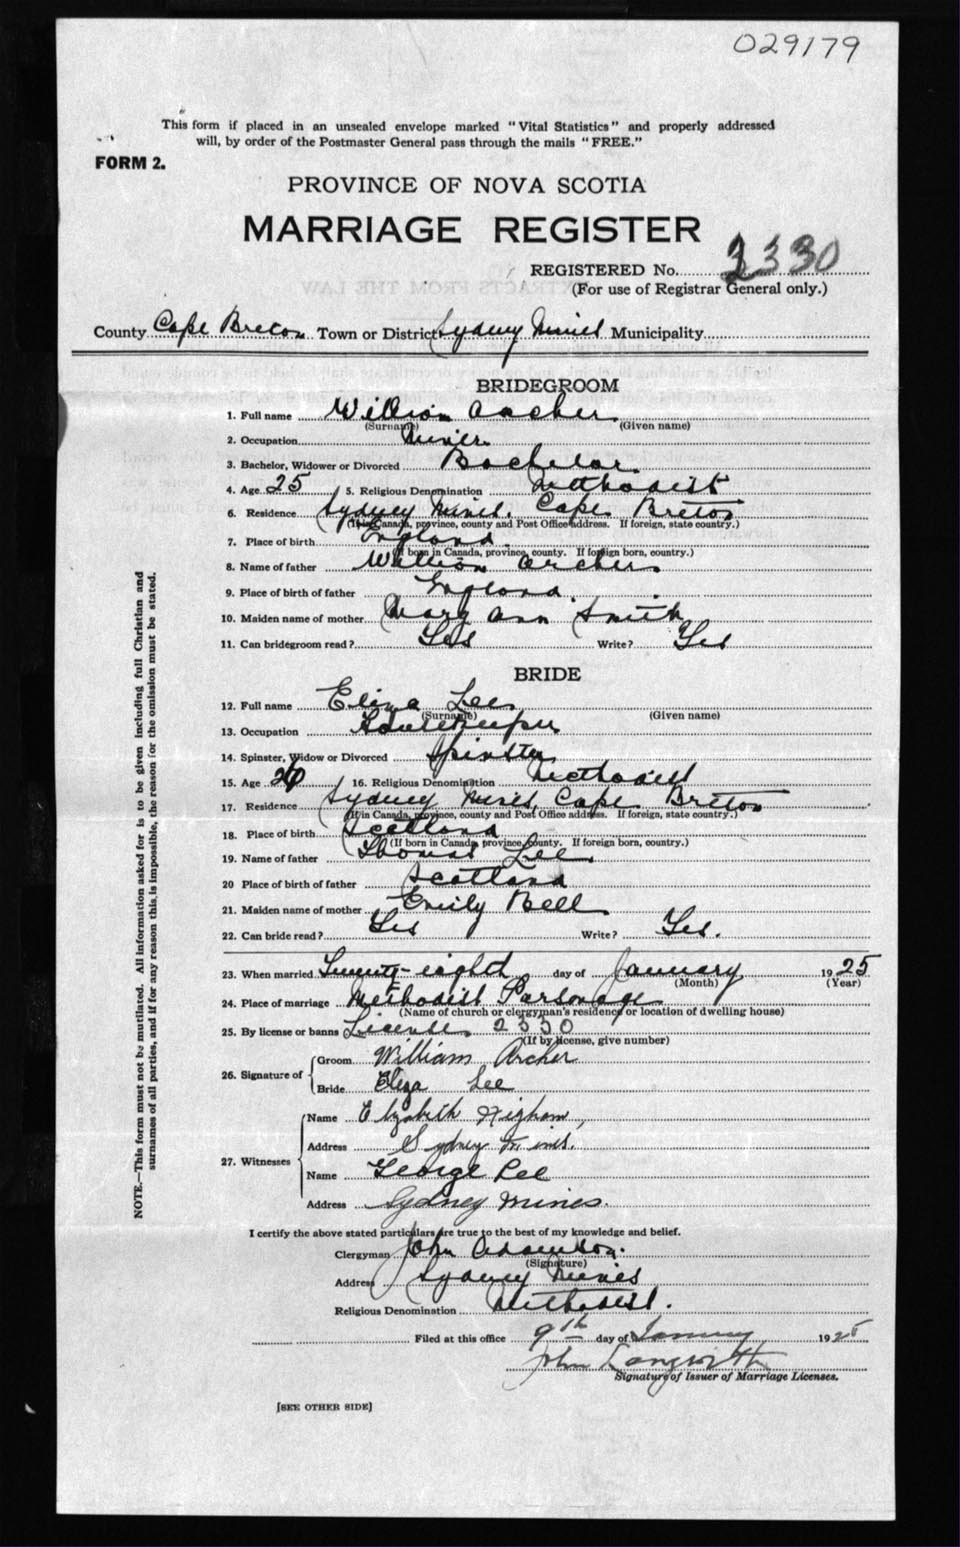 029179
This form if placed in an unsealed envelope marked "Vital Statistics" and properly addressed
will, by order of the Postmaster General pass through the mails "FREE."
FORM 2.
PROVINCE OF NOVA SCOTIA
MARRIAGE REGISTER
REGISTERED No. 3330
(For use of Registrar General only.)
County Cape Breton Town or District Sydney Mines Municipality
BRIDEGROOM
1. Full name William Archer
(Surname) (Given name)
2. Occupation Miner
3. Bachelor, Widower or Divorced Bachelor.
4. Age 25 5. Religious Denomination Methodist
6. Residence Sydney Mines, Cape Breton
(If in Canada, province, county and Post Office address. If foreign, state country.)
7. Place of birth England.
(If born in Canada, province, county. If foreign born, country.)
8. Name of father William Archer
9. Place of birth of father England.
10. Maiden name of mother Mary Ann Smith
11. Can bridegroom read? Yes Write? Yes
BRIDE
12. Full name Eliza Lee
(Surname) (Given name)
13. Occupation Housekeeper
14. Spinster, Widow or Divorced Spinster
15. Age 26 16. Religious Denomination Methodist
17. Residence Sydney Mines, Cape Breton
(If in Canada, province, county and Post Office address. If foreign, state country.)
18. Place of birth Scotland
(If born in Canada, province, county. If foreign born, country.)
19. Name of father Thomas Lee
20 Place of birth of father Scotland
21. Maiden name of mother Emily Bell
22. Can bride read? Yes Write? Yes.
23. When married Twenty-eighth day of January 1925
(Month) (Year)
24. Place of marriage Methodist Parsonage
(Name of church or clergyman's residence or location of dwelling house)
25. By license or banns License 2330
(If by license, give number)
26. Signature of
Groom William Archer
Bride Eliza Lee
27. Witnesses
Name Elizabeth Higham,
Address Sydney Mines.
Name George Lee
Address Sydney Mines.
I certify the above stated particulars are true to the best of my knowledge and belief.
Clergyman John
(Signature)
Address Sydney Mines
Religious Denomination Methodist.
Filed at this office 9th day of January 1925
John Langwith
Signature of Issuer of Marriage Licenses.
[SEE OTHER SIDE]
NOTE.—This form must not be mutilated. All information asked for is to be given including full Christian and
surnames of all parties, and if for any reason this is impossible, the reason for the omission must be stated.